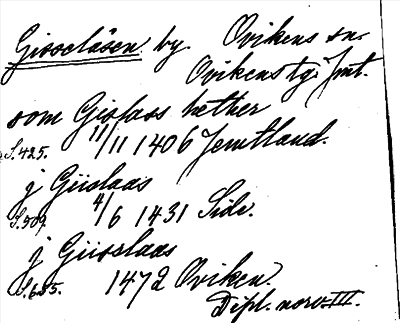 Gisseläsen. by. Ovikens sn.
Ovikens tg. Jmt.
som Gislass hether
S. 425. 11/11 1406 Jemtland.
j Giislaas
S. 509. 4/6 1431 Side.
j Giisslaas
S. 655. 1472 Oviken.
Dipl. norv. III.